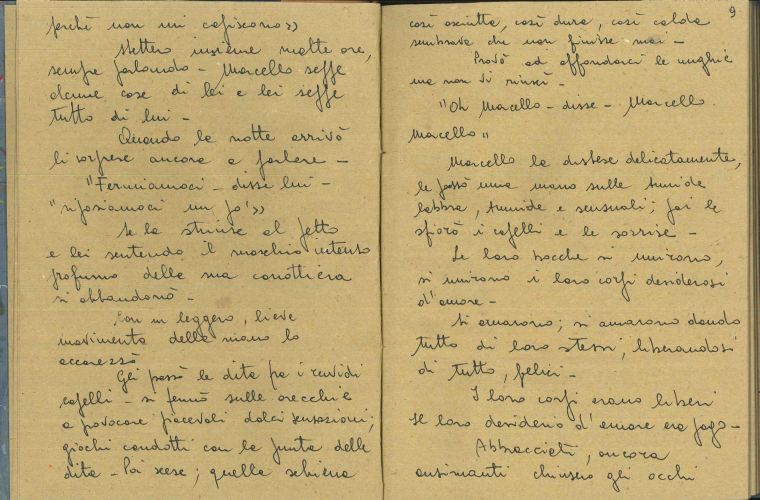 perché non mi capiscono»
Stettero insieme molte ore,
sempre parlando - Marcello seppe
alcune cose di lei e lei seppe
tutto di lui -
Quando la notte arrivò
li sorprese ancora a parlare -
"Fermiamoci - disse lui -
"riposiamoci un po'»
Se la strinse al petto
e lei sentendo il maschio intenso
profumo della sua canottiera
si abbandonò -
Con un leggero, lieve
movimento della mano lo
accarezzò
Gli passò le dita fra i ruvidi
capelli - si fermò sulle orecchie
a provocare piacevoli dolci sensazioni;
giochi condotti con la punta delle
dita - Poi scese; quella schiena
9
così asciutta, così dura, così calda
sembrava che non finisse mai -
Provò ad affondarci le unghie
ma non vi riuscì -
"Oh Marcello - disse - Marcello
Marcello"
Marcello la distese delicatamente,
le passò una mano sulle tumide
labbra, tumide e sensuali; poi le
sfiorò i capelli e le sorrise -
Le loro bocche si unirono,
si unirono i loro corpi desiderosi
d'amore -
Si amarono; si amarono dando
tutto di loro stessi, liberandosi
di tutto, felici -
I loro corpi erano liberi
Il loro desiderio d'amore era pago -
Abbracciati, ancora
ansimanti chiusero gli occhi